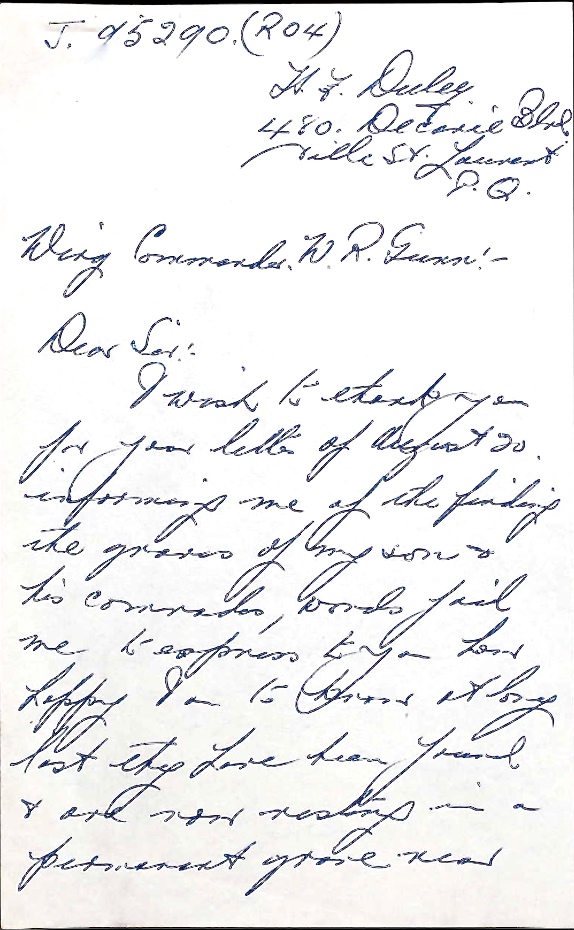 J. 95290.(R04)
H. F. Duley
480. Decarie Blvd.
Ville St. Laurent
P.Q.
Wing Commander. W. R. Gunn:-
Dear Sir:-
I wish to thank you
for your letter of August 20.
informing me of the finding
the graves of my son &
his comrades, words fail
me to express to you how
happy I am to know at long
last they have been found
& are now resting in a
permanent grave near